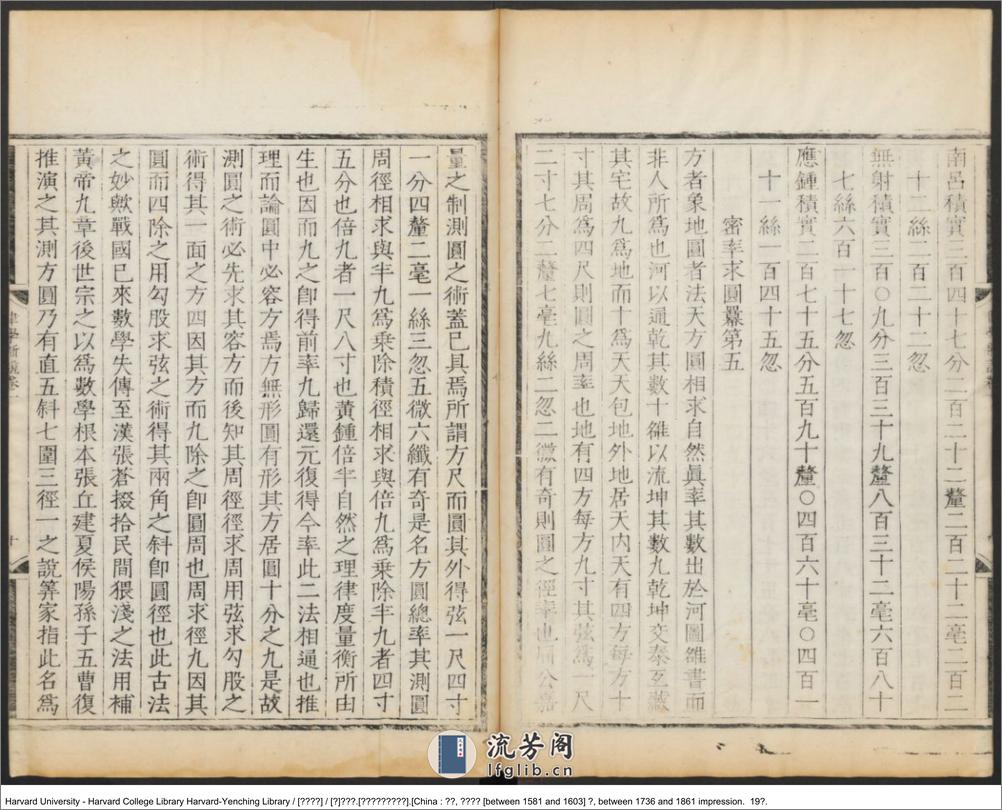 南呂積實三百四十七分二百二十二釐二百二十二毫二百二
十二絲二百二十二忽
無射積實三百〇九分三百三十九釐八百三十二毫六百八十
七絲六百一十七忽
應鍾積實二百七十五分五百九十釐〇四百六十毫〇四百一
十一絲一百四十五忽
密率求圓冪第五
方者象地圓者法天方圓相求自然眞率其數出於河圖雒書而
非人所爲也河以通乾其數十雒以流坤其數九乾坤交泰互藏
其宅故九爲地而十爲天天包地外地居天内天有四方每方十
寸其周爲四尺則圓之周率也地有四方每方九寸其弦爲一尺
二寸七分二釐七毫九絲二忽二微有奇則圓之徑率也周公嘉
量之制測圓之術蓋已具焉所謂方尺而圓其外得弦一尺四寸
一分四釐二毫一絲三忽五微六纖有奇是名方圓總率其測圓
周徑相求與半九爲乗除積徑相求與倍九爲乗除半九者四寸
五分也倍九者一尺八寸也黃鍾倍半自然之理律度量衡所由
生也因而九之卽得前率九歸還元復得今率此二法相通也推
理而論圓中必容方焉方無形圓有形其方居圓十分之九是故
測圓之術必先求其容方而後知其周徑徑求周用弦求勾股之
術得其一面之方四因其方而九除之卽圓周也周求徑九因其
圓而四除之用勾股求弦之術得其兩角之斜卽圓徑也此古法
之妙歟戰國已來數學失傳至漢張蒼掇拾民間猥淺之法用補
黃帝九章後世宗之以爲數學根本張丘建夏侯陽孫子五曹復
推演之其測方圓乃有直五斜七圍三徑一之說筭家指此名爲
律學新說卷一
十
流芳阁
lfglib.cn
Harvard University - Harvard College Library Harvard-Yenching Library / [????] / [?]???.[?????????].[China : ??, ???? [between 1581 and 1603] ?, between 1736 and 1861 impression. 19?.